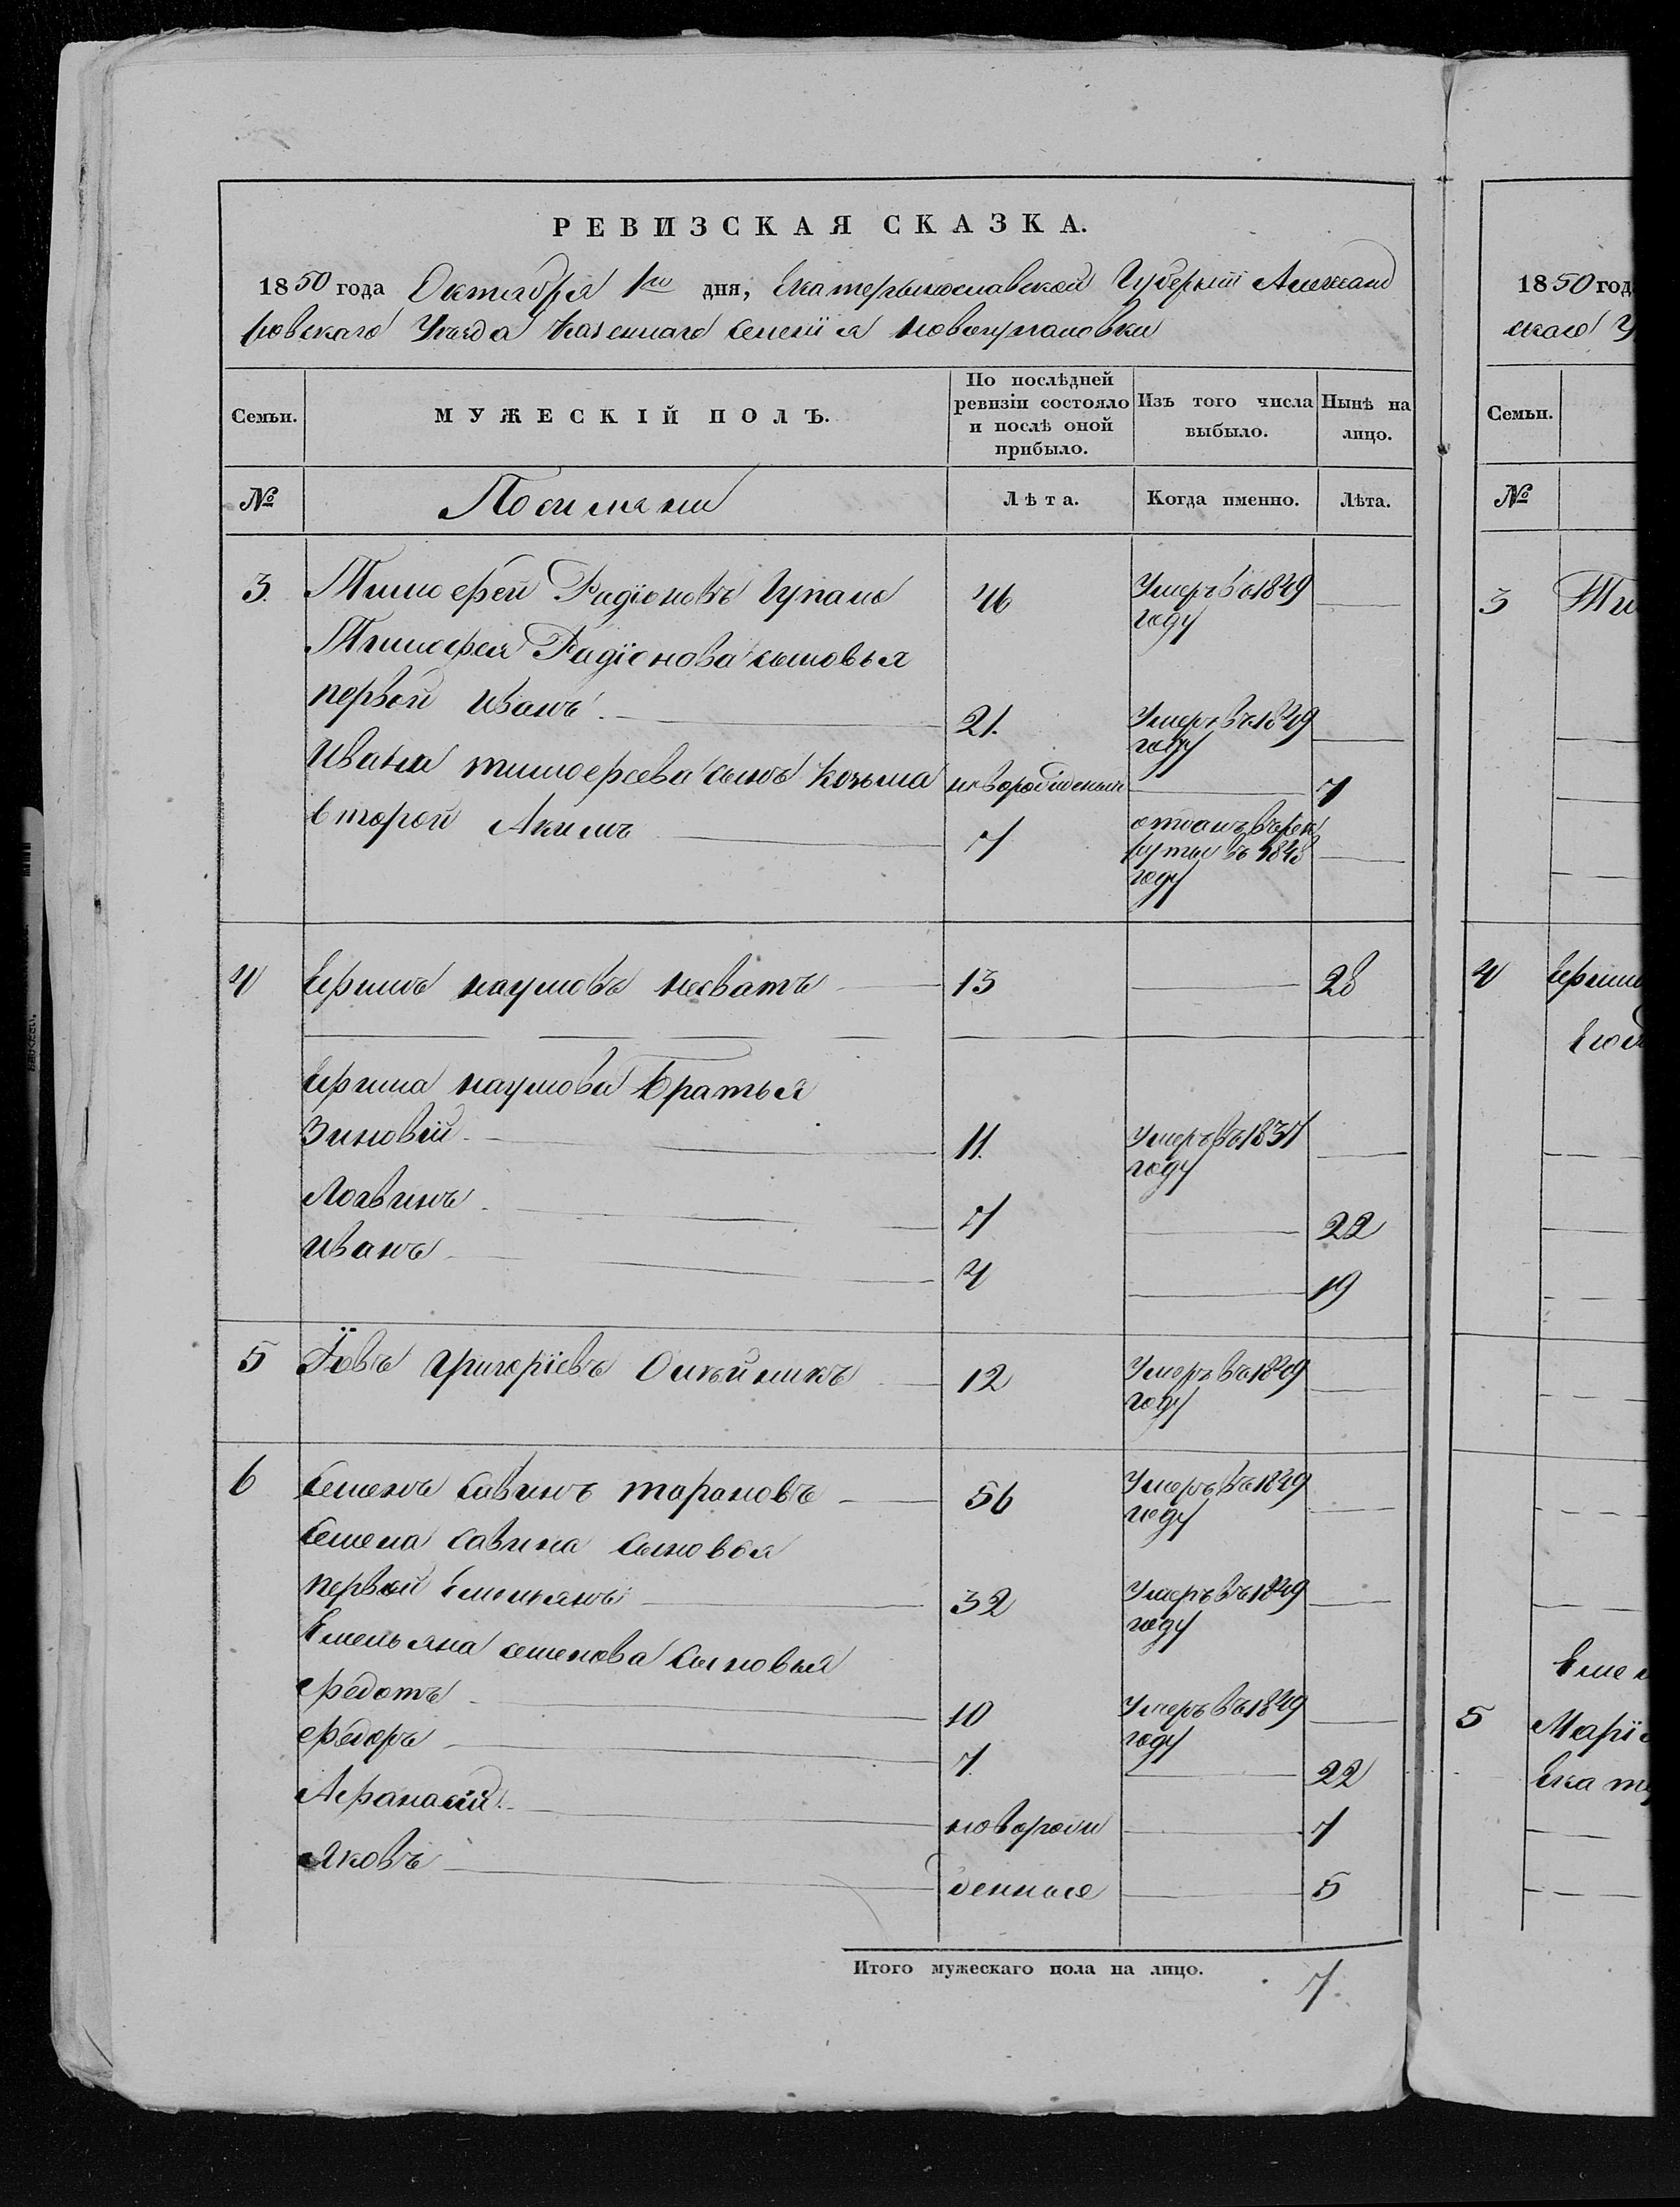 РЕВИЗСКАЯ СКАЗКА.
1850 года Октября 1го дня, Екатеринославской Губернии Александ
ровскаго Уѣзда Казеннаго селенія Новогупаловки
Семьи. МУЖЕСКІЙ ПОЛЪ. По послѣдней ревизіи состояло и послѣ оной прибыло. Изъ того числа выбыло. Нынѣ на лицо.
№ Поселяне Лѣта. Когда именно. Лѣта.
3. Тимофей Радіоновъ Гупало 46 Умеръ въ 1849 году
Тимофея Радіонова сыновья
первой Иванъ 21. Умеръ въ 1849 году
Ивана тимофеева сынъ козьма новорожденный 7
второй Акимъ 7 отданъ въ рек
руты въ 1848
году
4 Ефимъ наумовъ несватъ 13 28
Ефима наумова братья
Зиновій 11. Умеръ въ 1837 году
Логвинъ 7 22
Иванъ 4 19
5 Іовъ Григорієвъ Олѣйникъ 12 Умеръ въ 1849 году
6 Семенъ Савинъ тарановъ 56 Умеръ въ 1849 году
Семена Савина Сыновья
первой Емельянъ 32 Умеръ въ 1849 году
Емельяна семенова Сыновья
Федотъ 10 Умеръ въ 1849 году
Федоръ 7. 22
Афанасій новорож 7
Яковъ денные 5
Итого мужескаго пола на лицо. 7.
1850 год
скаго У
Семьи.
№
3 Ти
4 Ефим
5 Марі